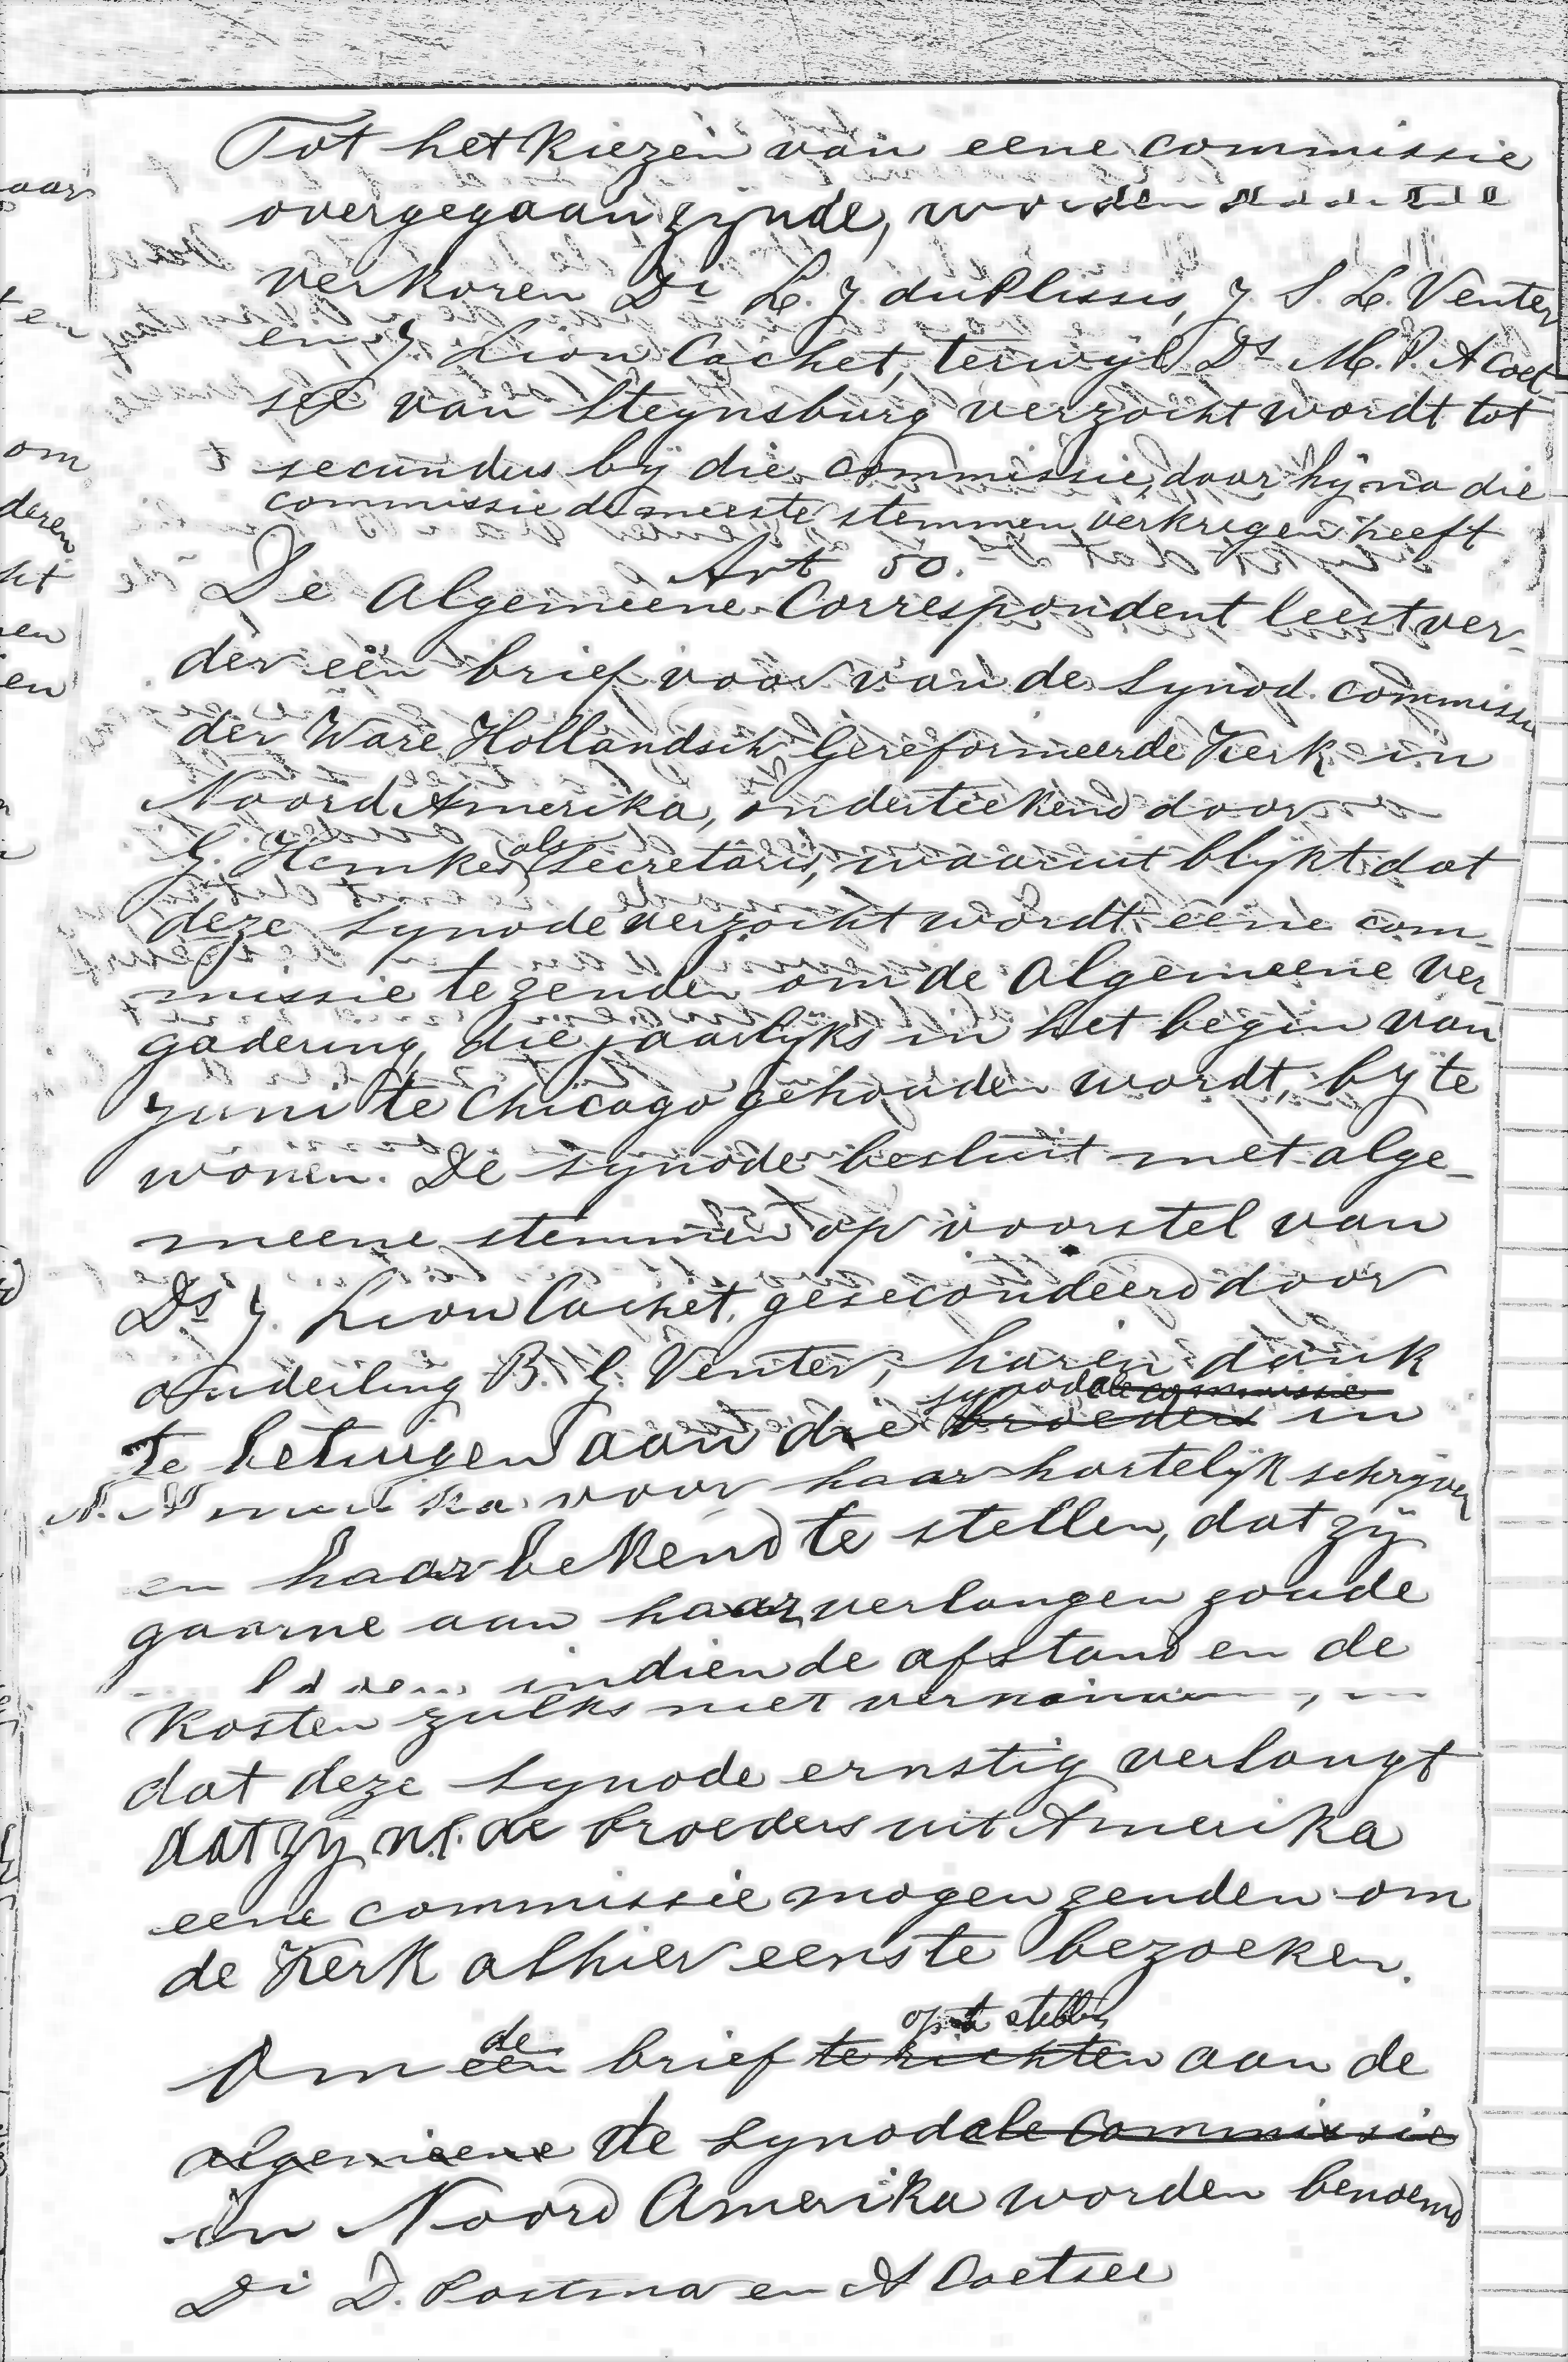 Tot het kiezen van eene commissie
overgegaan zynde, worden
verkoren Di L. J. du Plessis, J. S. L. Venter
en J Lion Cachet, terwyl Ds M. P. A Coet-
see van Steynsburg verzocht wordt tot
secundus by die commissie, daar hy na die
commissie de meeste stemmen verkregen heeft
Art 50.
De Algemeene Correspondent leest ver-
der een brief voor van de Synod. commissie
der Ware Hollandsch Gereformeerde Kerk in
Noord Amerika, onderteekend door
G. Hemkes als Secretaris, waaruit blykt dat
deze Synode verzocht wordt eene com-
missie te zenden om de Algemeene Ver-
gadering, die jaarlyks in het begin van
Juni te Chicago gehouden wordt, by te
wonen. De Synode besluit met alge-
meene stemmen op voorstel van
Ds J. Lion Cachet, gesecondeerd door
ouderling B. J. Venter, haren dank
synodale commissie
te betuigen aan die broeders in
N. Amerika voor haar hartelyk schryven
en haar bekend te stellen, dat zy
gaarne aan haar verlangen zoude
indien de afstand en de
kosten zulks niet
dat deze Synode ernstig verlangt
dat zy n.l. de broeders uit Amerika
eene commissie mogen zenden om
de Kerk alhier eens te bezoeken.
de op te stellen
Om een brief te richten aan de
algemeene de Synodale Commissie
in Noord Amerika worden benoemd
Di D. Postma en A Coetsee